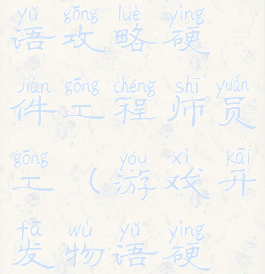 yǔ gōng lüè yìng
语攻略硬
jiàn gōng chéng shī yuán
件工程师员
gōng yóu xì kāi
工（游戏开
fā wù yǔ yìng
发物语硬